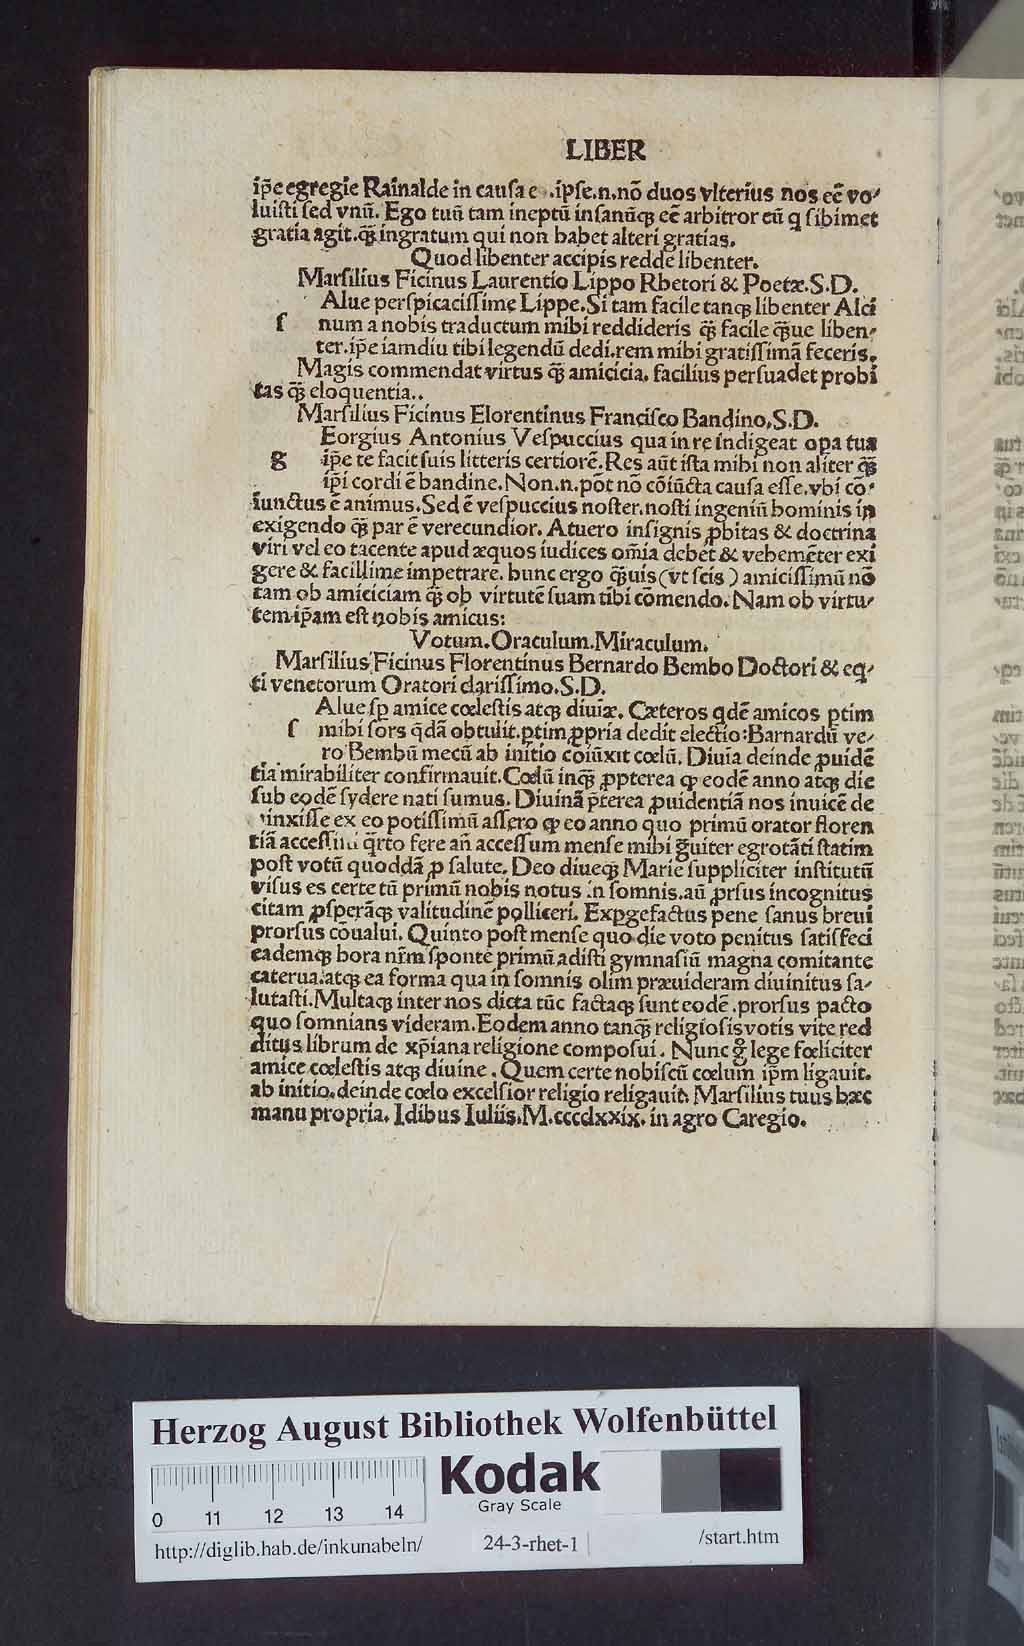 LIBER
ip̃e egregie Rainalde in causa e .ipſe.n.nõ duos vlterius nos eẽ vo-
luiſti ſed vnũ. Ego tuũ tam ineptũ inſanũqꝫ eẽ arbitror cũ q ſibimet
gratia agit.qꝫ̃ ingratum qui non habet alteri gratias.
Quod libenter accipis redde libenter.
Marſilius Ficinus Laurentio Lippo Rhetori & Poetæ.S.D.
Alue perſpicaciſſime Lippe.Si tam facile tanqꝫ libenter Alci
ſ num a nobis traductum mihi reddideris qꝫ̃ facile qꝫ̃ue liben-
ter.ip̃e iamdiu tibi legendũ dedi.rem mihi gratiſſimã feceris.
Magis commendat virtus qꝫ̃ amicicia. facilius perſuadet probi
tas qꝫ̃ eloquentia..
Marſilius Ficinus Elorentinus Franciſco Bandino.S.D.
Eorgius Antonius Veſpuccius qua in re indigeat opa tua
g ip̃e te facit ſuis litteris certiorẽ. Res aũt iſta mihi non aliter qꝫ̃
ip̃i cordi ẽ bandine. Non.n.põt nõ cõiũcta cauſa eſſe.vbi cõ-
iunctus ẽ animus. Sed ẽ veſpuccius noſter.noſti ingeniũ hominis in
exigendo qꝫ̃ par ẽ verecundior. Atuero inſignis ꝓbitas & doctrina
viri vel eo tacente apud æquos iudices om̃ia debet & vehemẽter exi
gere & facillime impetrare. hunc ergo qꝫ̃uis (vt ſcis) amiciſſimũ nõ
tam ob amiciciam qꝫ̃ ob virtutẽ ſuam tibi cõmendo. Nam ob virtu-
tem ip̃am eſt nobis amicus:
Votum.Oraculum.Miraculum.
Marſilius Ficinus Florentinus Bernardo Bembo Doctori & eq-
ti venetorum Oratori clariſſimo.S.D.
Alue ſꝑ amice cœleſtis atqꝫ diuiæ. Cæteros qdẽ amicos ꝑtim
ſ mihi ſors q̃dã obtulit.ꝑtim ꝓpria dedit electio:Barnardũ ve-
ro Bembũ mecũ ab initio coiũxit cœlũ. Diuia deinde ꝓuidẽ
tia mirabiliter confirmauit. Cœlũ inqꝫ̃ ꝓpterea ꝙ eodẽ anno atqꝫ die
ſub eodẽ ſydere nati ſumus. Diuinã p̃terea ꝓuidentiã nos inuicẽ de
uinxiſſe ex eo potiſſimũ aſſero ꝙ eo anno quo primũ orator floren
tiã acceſſiſti q̃rto fere añ acceſſum menſe mihi g̃uiter egrotãti ſtatim
poſt votũ quoddã ꝓ ſalute. Deo diueqꝫ Marie ſuppliciter inſtitutũ
viſus es certe tũ primũ nobis notus in ſomnis.aũ ꝓrſus incognitus
citam ꝓſperãqꝫ valitudinẽ polliceri. Exꝑgefactus pene ſanus breui
prorſus cõualui. Quinto poſt menſe quo die voto penitus ſatiſfeci
eademqꝫ hora nr̃m ſponte primũ adiſti gymnaſiũ magna comitante
caterua.atqꝫ ea forma qua in ſomnis olim præuideram diuinitus ſa-
lutaſti. Multaqꝫ inter nos dicta tũc factaqꝫ ſunt eodẽ .prorſus pacto
quo ſomnians videram. Eodem anno tanqꝫ̃ religioſis votis vite red
ditus librum de xp̃iana religione compoſui. Nunc g̊ lege fœliciter
amice cœleſtis atqꝫ diuine. Quem certe nobiſcũ cœlum ip̃m ligauit.
ab initio.deinde cœlo excelſior religio religauit. Marſilius tuus hæc
manu propria. Idibus Iuliis.M.ccccdxxix. in agro Caregio.
Herzog August Bibliothek Wolfenbüttel
Kodak
Gray Scale
0 11 12 13 14
http://diglib.hab.de/inkunabeln/ 24-3-rhet-1 /start.htm